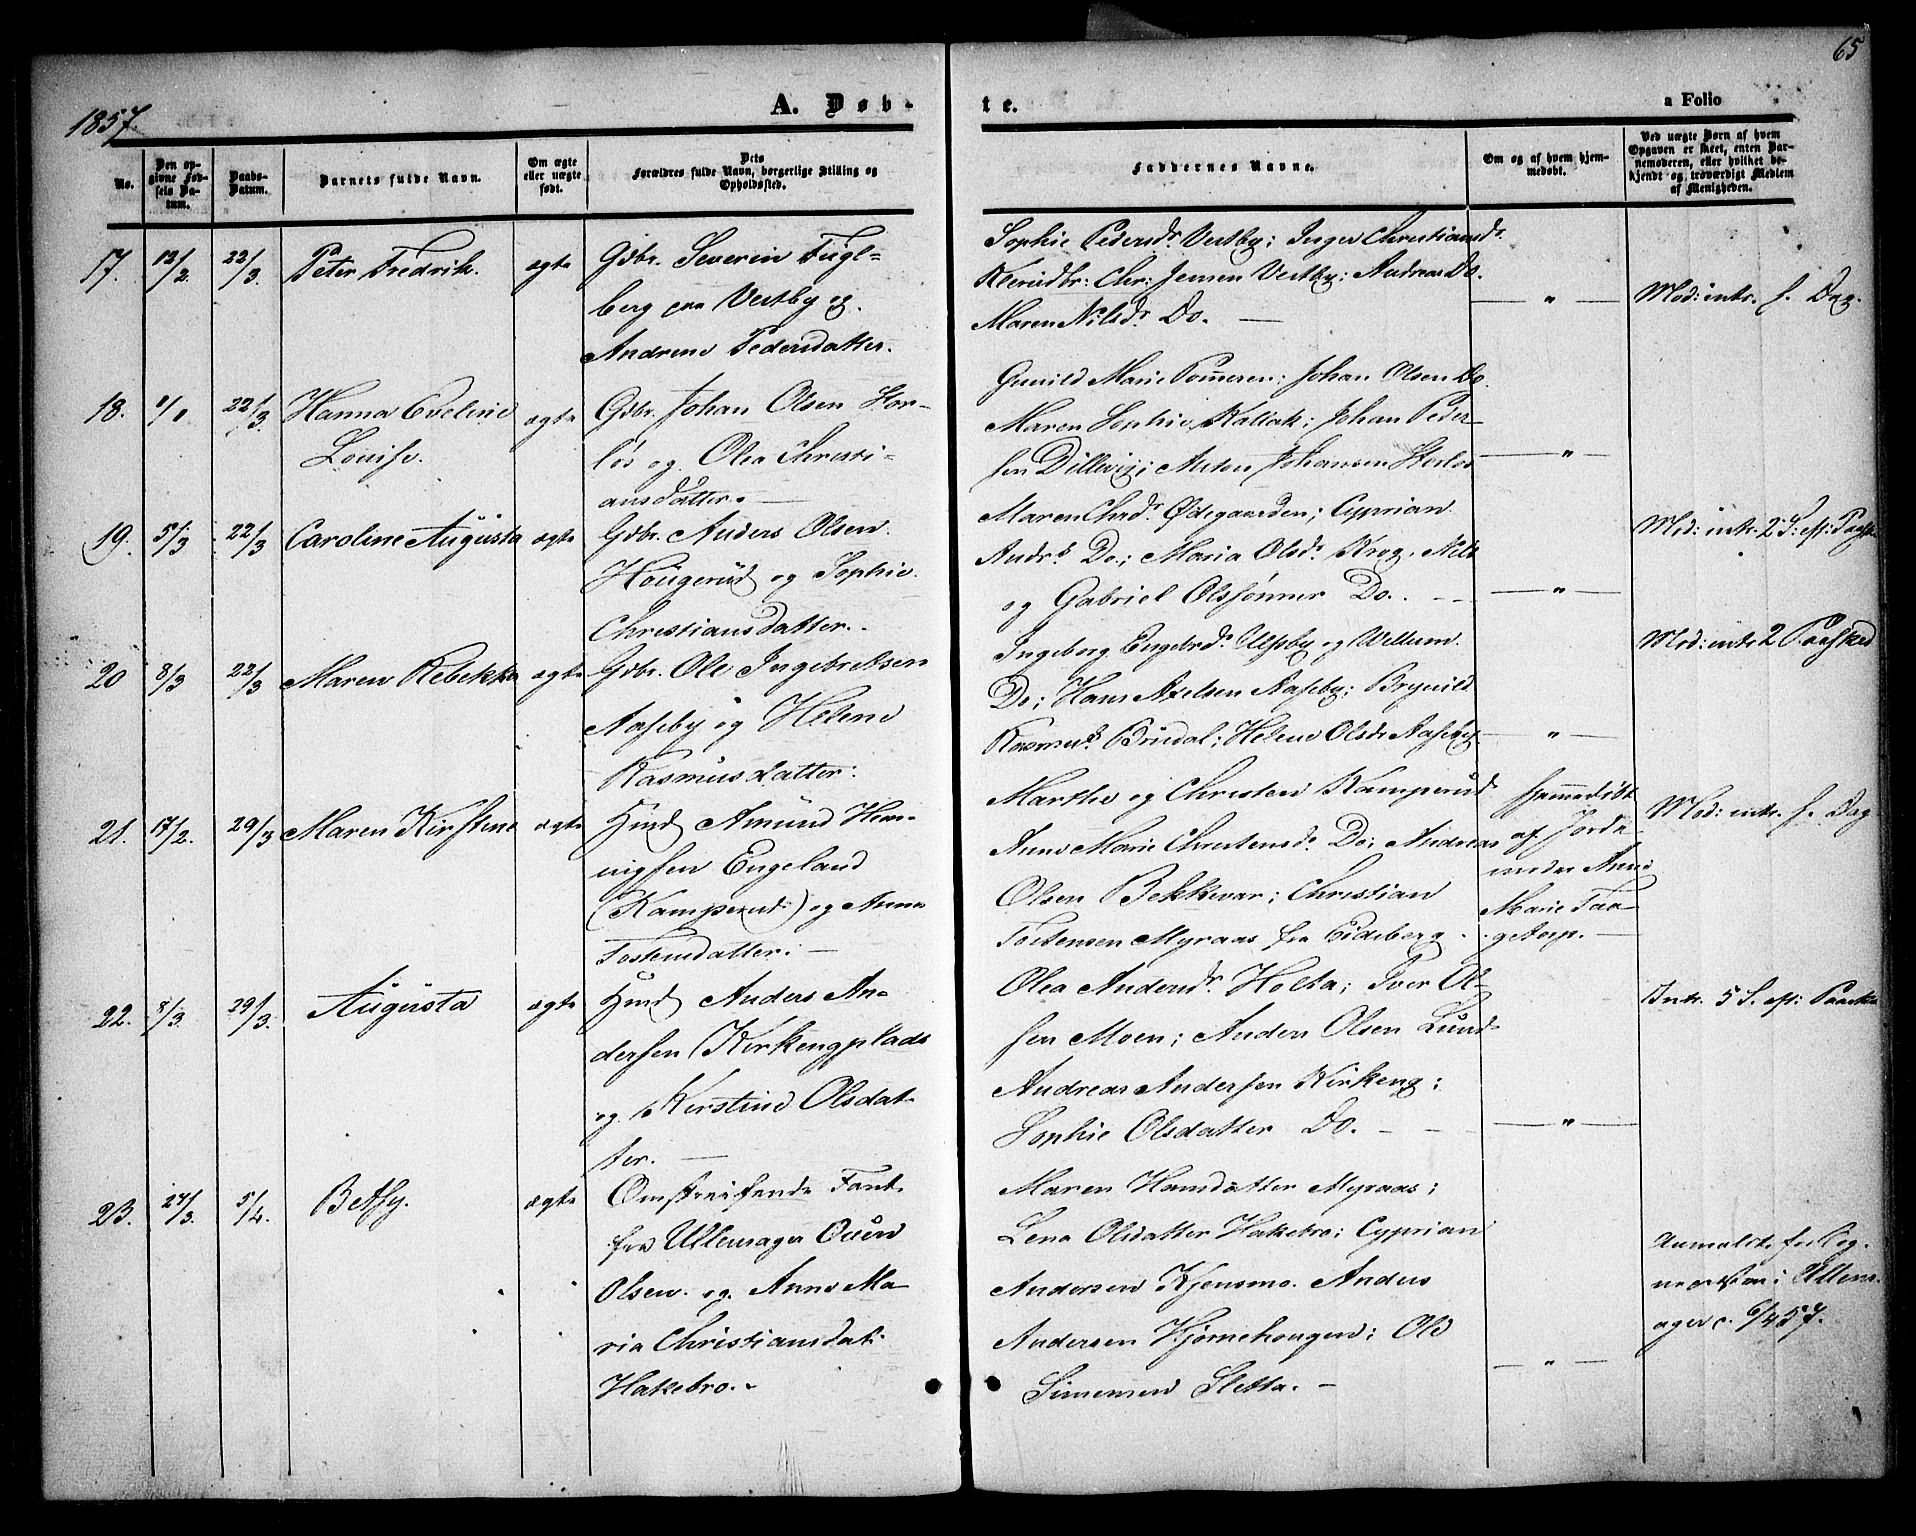 65
1857.
A. Døb-
te.
a Folio
No.
Den op-
givne Fød-
sels Da-
tum.
Daabs-
Datum.
Barnets fulde Navn.
Om ægte
eller uægte
født.
Dets
Forældres fulde Navn, borgerlige Stilling og
Opholdssted.
Faddernes Navne.
Om og af hvem hjem-
medøbt.
Ved uægte Børn af hvem
Opgaven er skeet, enten Bar-
nemoderen, eller hvilket be-
kjendt og troværdigt Medlem
af Menigheden.
17. 12/2. 22/3. Peter Fredrik. ægte
Gdbr. Severin Fugl=
berg paa Vestby og
Andrine Pedersdatter.
Sophie Pedersdr. Vestby; Inger Christiansdr.
Chr: Jensen Vestby; Andreas Do.
Maren Nilsdr. Do. —
— " —
Mod: intr. s. Dag.
18. 22/3. Hanna Eveline
Louise. ægte
Gdbr. Johan Olsen Hor-
løs og Olea Christi-
ansdatter. —
Gunild Marie Pomeren; Johan Olsen Do.
Maren Sophie Kallak; Johan Peder-
sen Dillevig; Anton Johansen Horløs
— " —
19. 5/3 22/3 Caroline Augusta ægte
Gdbr. Anders Olsen
Hougerud og Sophie
Christiansdatter.
Maren Chrdr. Ødegaarden; Cyprian
Andrs. Do; Maria Olsdr. Krog, Nils
og Gabriel Olssønner Do. — —
— " —
Mod: intr. 2 S: eft: Paaske
20 8/3 22/3 Maren Rebekka ægte
Gdbr. Ole Ingebretsen
Aaseby og Helene
Rasmusdatter.
Ingeborg Engebrdr. Ulseby og Willum
Do; Hans Axelsen Aaseby; Brynild
Rasmus. Brudal; Helene Olsdr. Aaseby
— " —
Mod: intr 2 Paasked
21. 17/2. 29/3 Maren Kirstine ægte
Hmd Amund Hen-
nigsen Engeland
(Kamperud) og Anne
Tostensdatter. —
Marthe og Christen Kamperud
Anne Marie Christensdr. Do; Andreas
Olsen Bekkevar; Christian
Tostensen Myraas fra Eidsberg
Hjemmedøbt
af Jorde-
moder Anne
Marie Taa-
getorp. —
Mod: intr. s. Dag
22. 8/3. 29/3. Augusta ægte
Hmd Anders An-
dersen Kirkengplads
og Kirstine Olsdat-
ter. —
Olea Andersdr. Holta; Iver Ol-
sen Moen; Anders Olsen Lund
Andreas Andersen Kirkeng;
Sophie Olsdatter Do. — —
— " —
Intr. 5 S. eft: Paaske
23. 24/3. 5/4. Betsy. ægte
Omstreifende Fant
fra Ullensager Ouen
Olsen og Anne Ma-
ria Christiansdat.
Hakebro.
Maren Hansdatter Myraas;
Lena Olsdatter Hakebro; Cyprian
Andersen Kjensmo. Anders
Andersen Hjørnehougen; Ole
Simensen Sletta. —
— " —
Anmeldt for Sog-
nepræsten i Ullens-
ager c. 6/4 57.